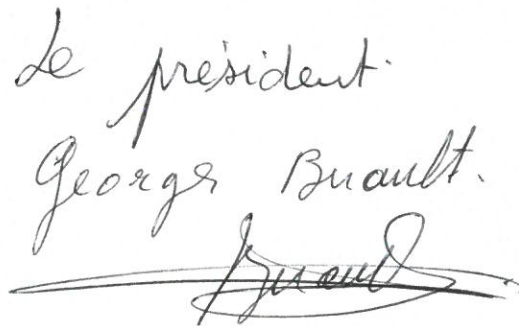 Le président.
Georges Buault.